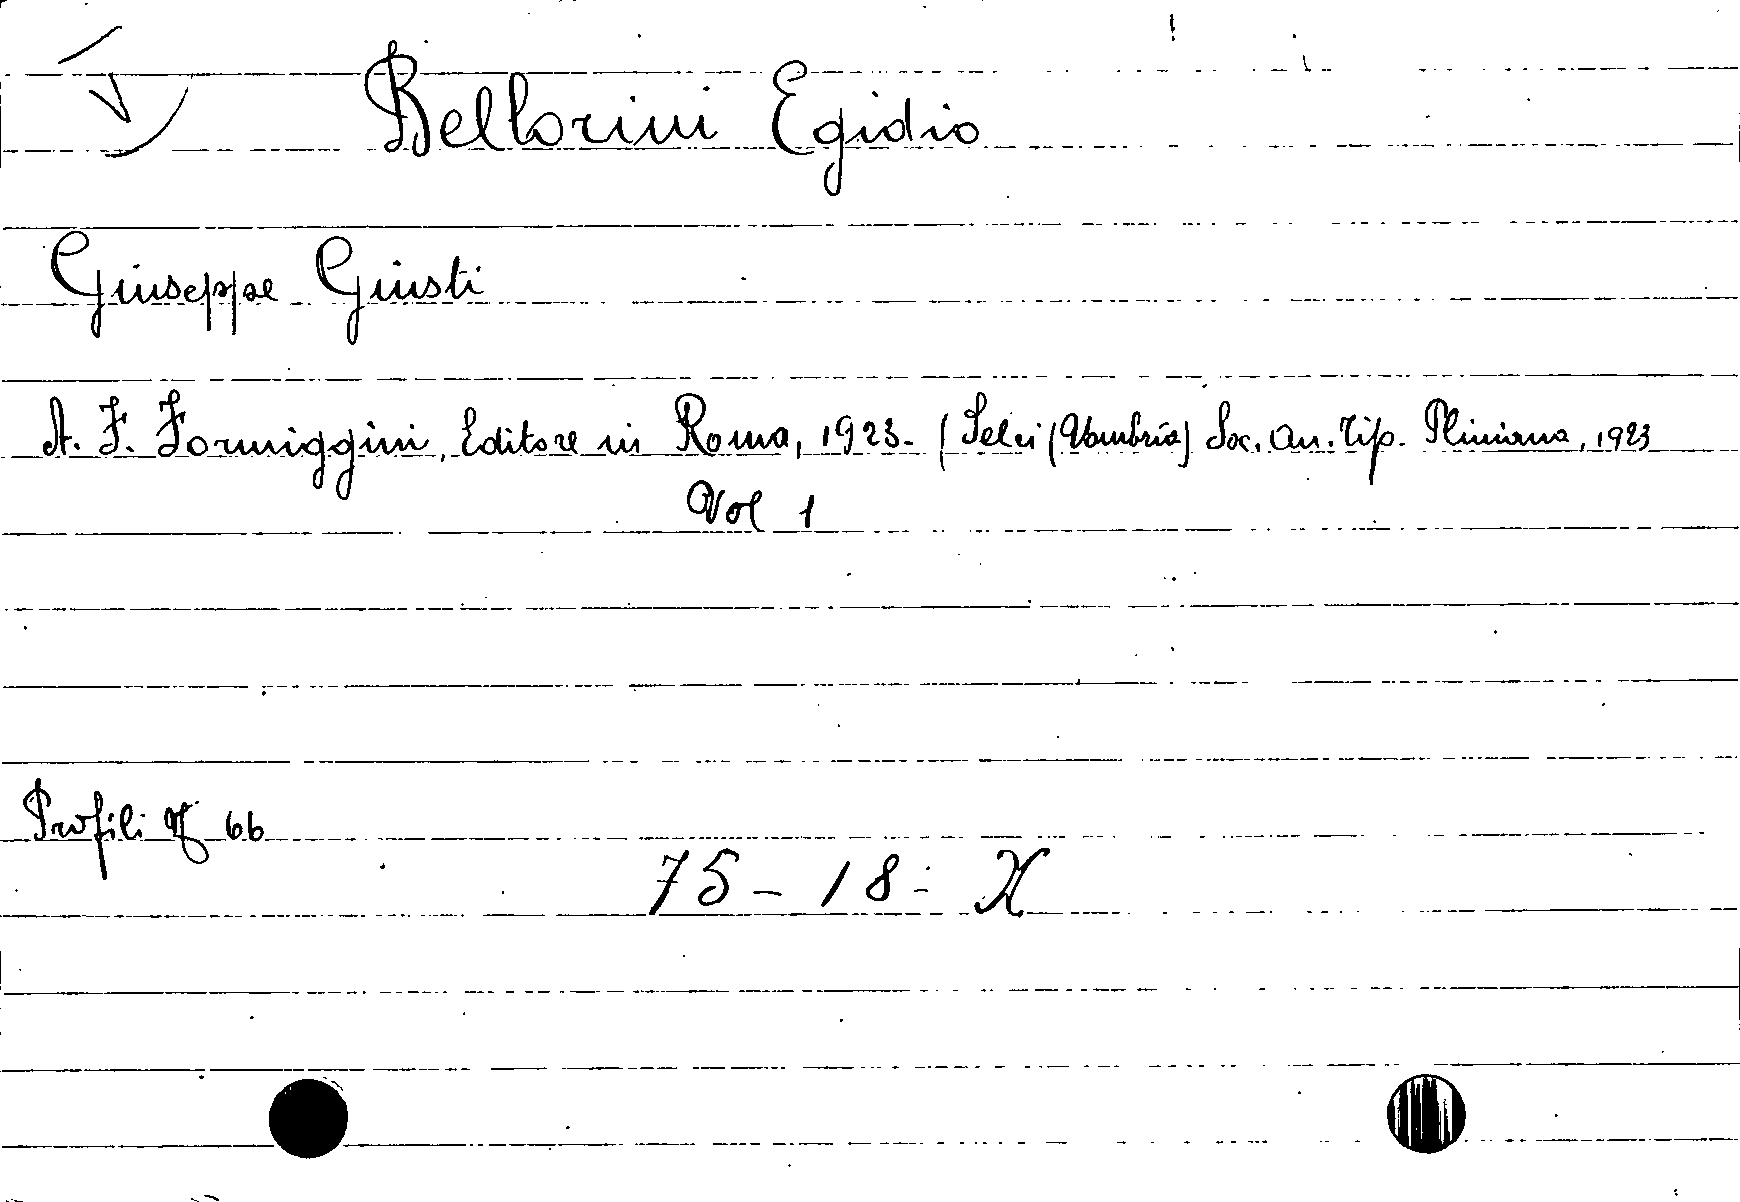 Bellorini Egidio
Giuseppe Giusti
A. F. Formiggini, Editore in Roma, 1923. (Selci (Umbria) Soc. An. Tip. Pliniana, 1923
Vol 1
Profili N 66
75 - 18 - X